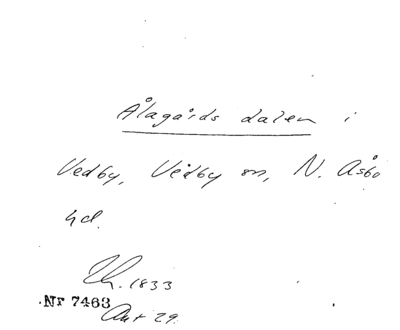 Ålagårds dalen i
Vedby, Vedby sn, N. Åsbo
hd.
Th. 1833
Nr 7463
Ant 29.